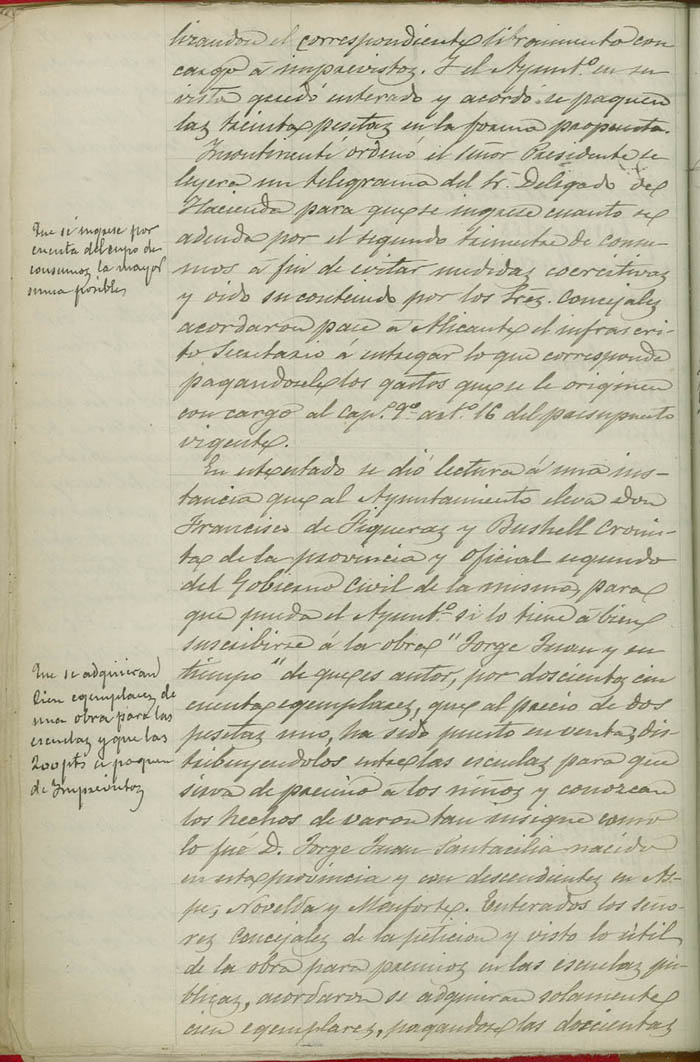 lizandose el correspondiente libramiento con
cargo á imprevistos. Y el Ayuntº en su
vista quedó enterado y acordó se paguen
las treinta pesetas en la forma propuesta.
Incontinenti ordenó el señor Presidente se
leyera un telegrama del Sr. Delegado de
Hacienda para que se ingrese cuanto se
adeuda por el segundo trimestre de consu-
mos á fin de evitar medidas coercitivas
y oido su contenido por los Srés. Concejales
acordaron pase á Alicante el infrascri-
to Secretario á entregar lo que corresponda
pagandosele los gastos que se le originen
con cargo al capº 9º artº 16 del presupuesto
vigente.
Que se ingrese por
cuenta del cupo de
consumos la mayor
suma posible
En este estado se dió lectura á una ins-
tancia que al Ayuntamiento eleva don
Francisco de Figueras y Bushell Cronis-
ta de la provincia y oficial segundo
del Gobierno Civil de la misma, para
que pueda el Ayuntº si lo tiene á bien
suscribirse á la obra "Jorge Juan y su
tiempo" de que es autor, por doscientos cin
cuenta egemplares, que al precio de dos
pesetas uno, ha sido puesto en venta, dis-
tribuyendolos entre las escuelas para que
sirva de premio a los niños y conozcan
los hechos de varon tan insigne como
lo fué D. Jorge Juan Santacilia nacido
en esta provincia y con descendientes en As-
pe, Novelda y Monforte. Enterados los seño-
res Concejales de la peticion y visto lo útil
de la obra para premios en las escuelas pú-
blicas, acordaron se adquieran solamente
cien egemplares, pagandose las doscientas
Que se adquieran
cien egemplares de
una obra para las
escuelas y que las
200 pts se paguen
de Imprevistos